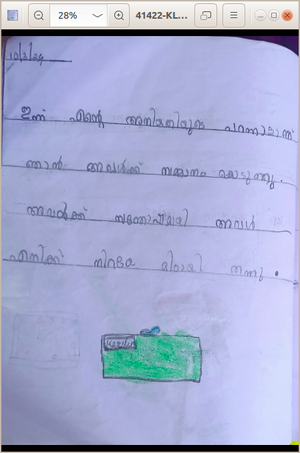 28%
41422-KL...
10/3/24
ഇന്ന് എന്റെ അനിയത്തിയുടെ പിറന്നാളാണ്
ഞാൻ അവൾക്ക് സമ്മാനം കൊടുത്തു.
അവൾക്ക് സന്തോഷമായി അവൾ
എനിക്ക് നിറയെ മിഠായി തന്നു.